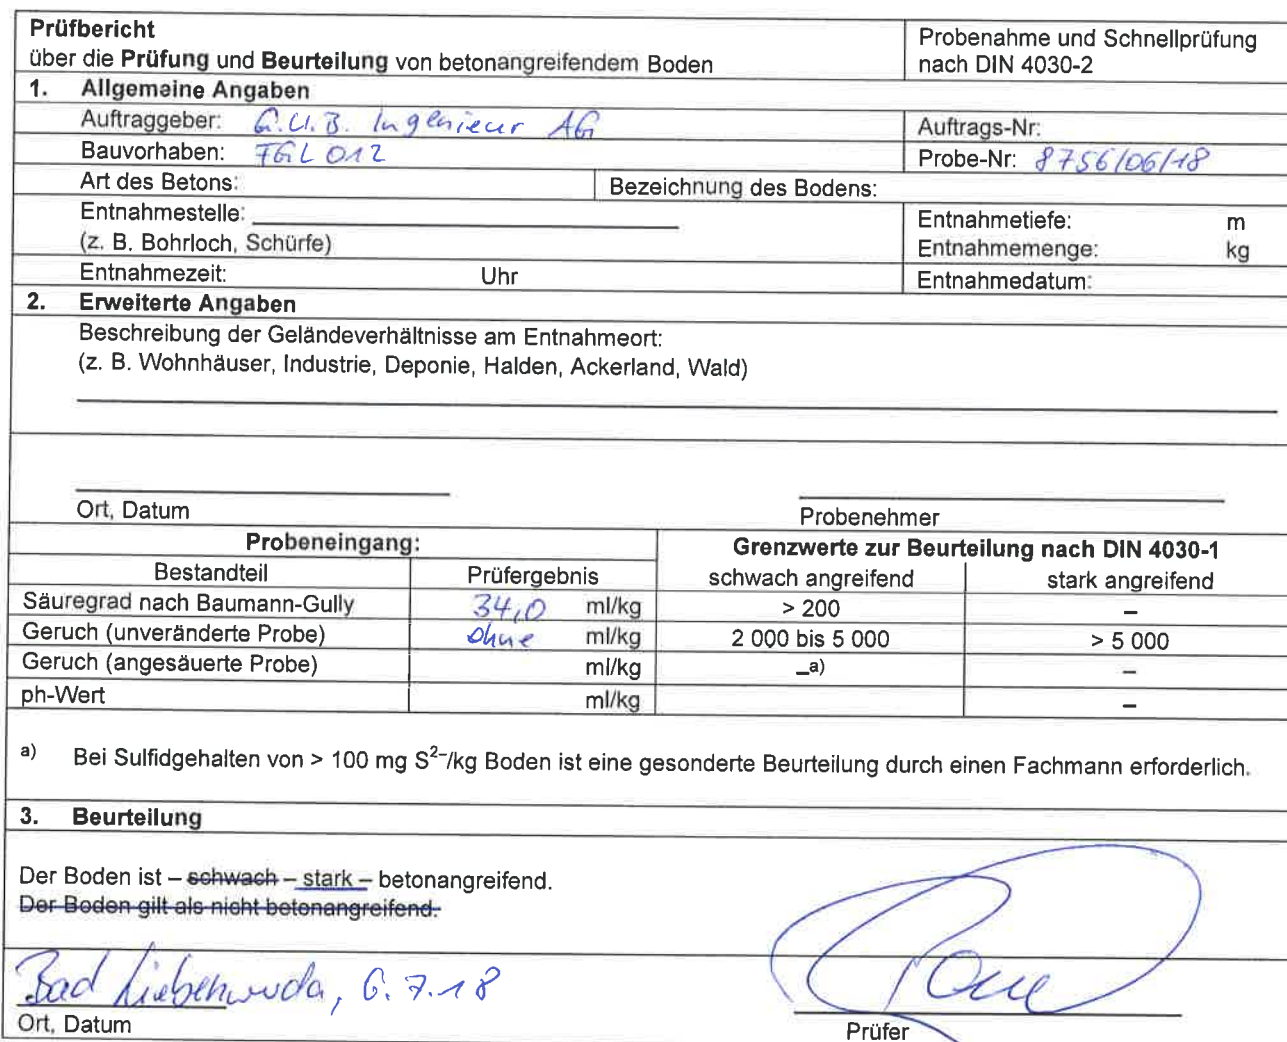 Prüfbericht
über die Prüfung und Beurteilung von betonangreifendem Boden
Probenahme und Schnellprüfung
nach DIN 4030-2
1. Allgemeine Angaben
Auftraggeber: G.U.B. Ingenieur AG
Auftrags-Nr:
Bauvorhaben: TGL 012
Probe-Nr: 8756/06/18
Art des Betons:
Bezeichnung des Bodens:
Entnahmestelle:
(z. B. Bohrloch, Schürfe)
Entnahmetiefe: m
Entnahmemenge: kg
Entnahmezeit: Uhr
Entnahmedatum:
2. Erweiterte Angaben
Beschreibung der Geländeverhältnisse am Entnahmeort:
(z. B. Wohnhäuser, Industrie, Deponie, Halden, Ackerland, Wald)
Ort, Datum
Probenehmer
Probeneingang:
Grenzwerte zur Beurteilung nach DIN 4030-1
Bestandteil Prüfergebnis schwach angreifend stark angreifend
Säuregrad nach Baumann-Gully 34,0 ml/kg > 200 –
Geruch (unveränderte Probe) ohne ml/kg 2 000 bis 5 000 > 5 000
Geruch (angesäuerte Probe) ml/kg –a) –
ph-Wert ml/kg –
a) Bei Sulfidgehalten von > 100 mg S²⁻/kg Boden ist eine gesonderte Beurteilung durch einen Fachmann erforderlich.
3. Beurteilung
Der Boden ist – schwach – stark – betonangreifend.
Der Boden gilt als nicht betonangreifend.
Bad Liebenwerda, 6.7.18
Ort, Datum
Prüfer